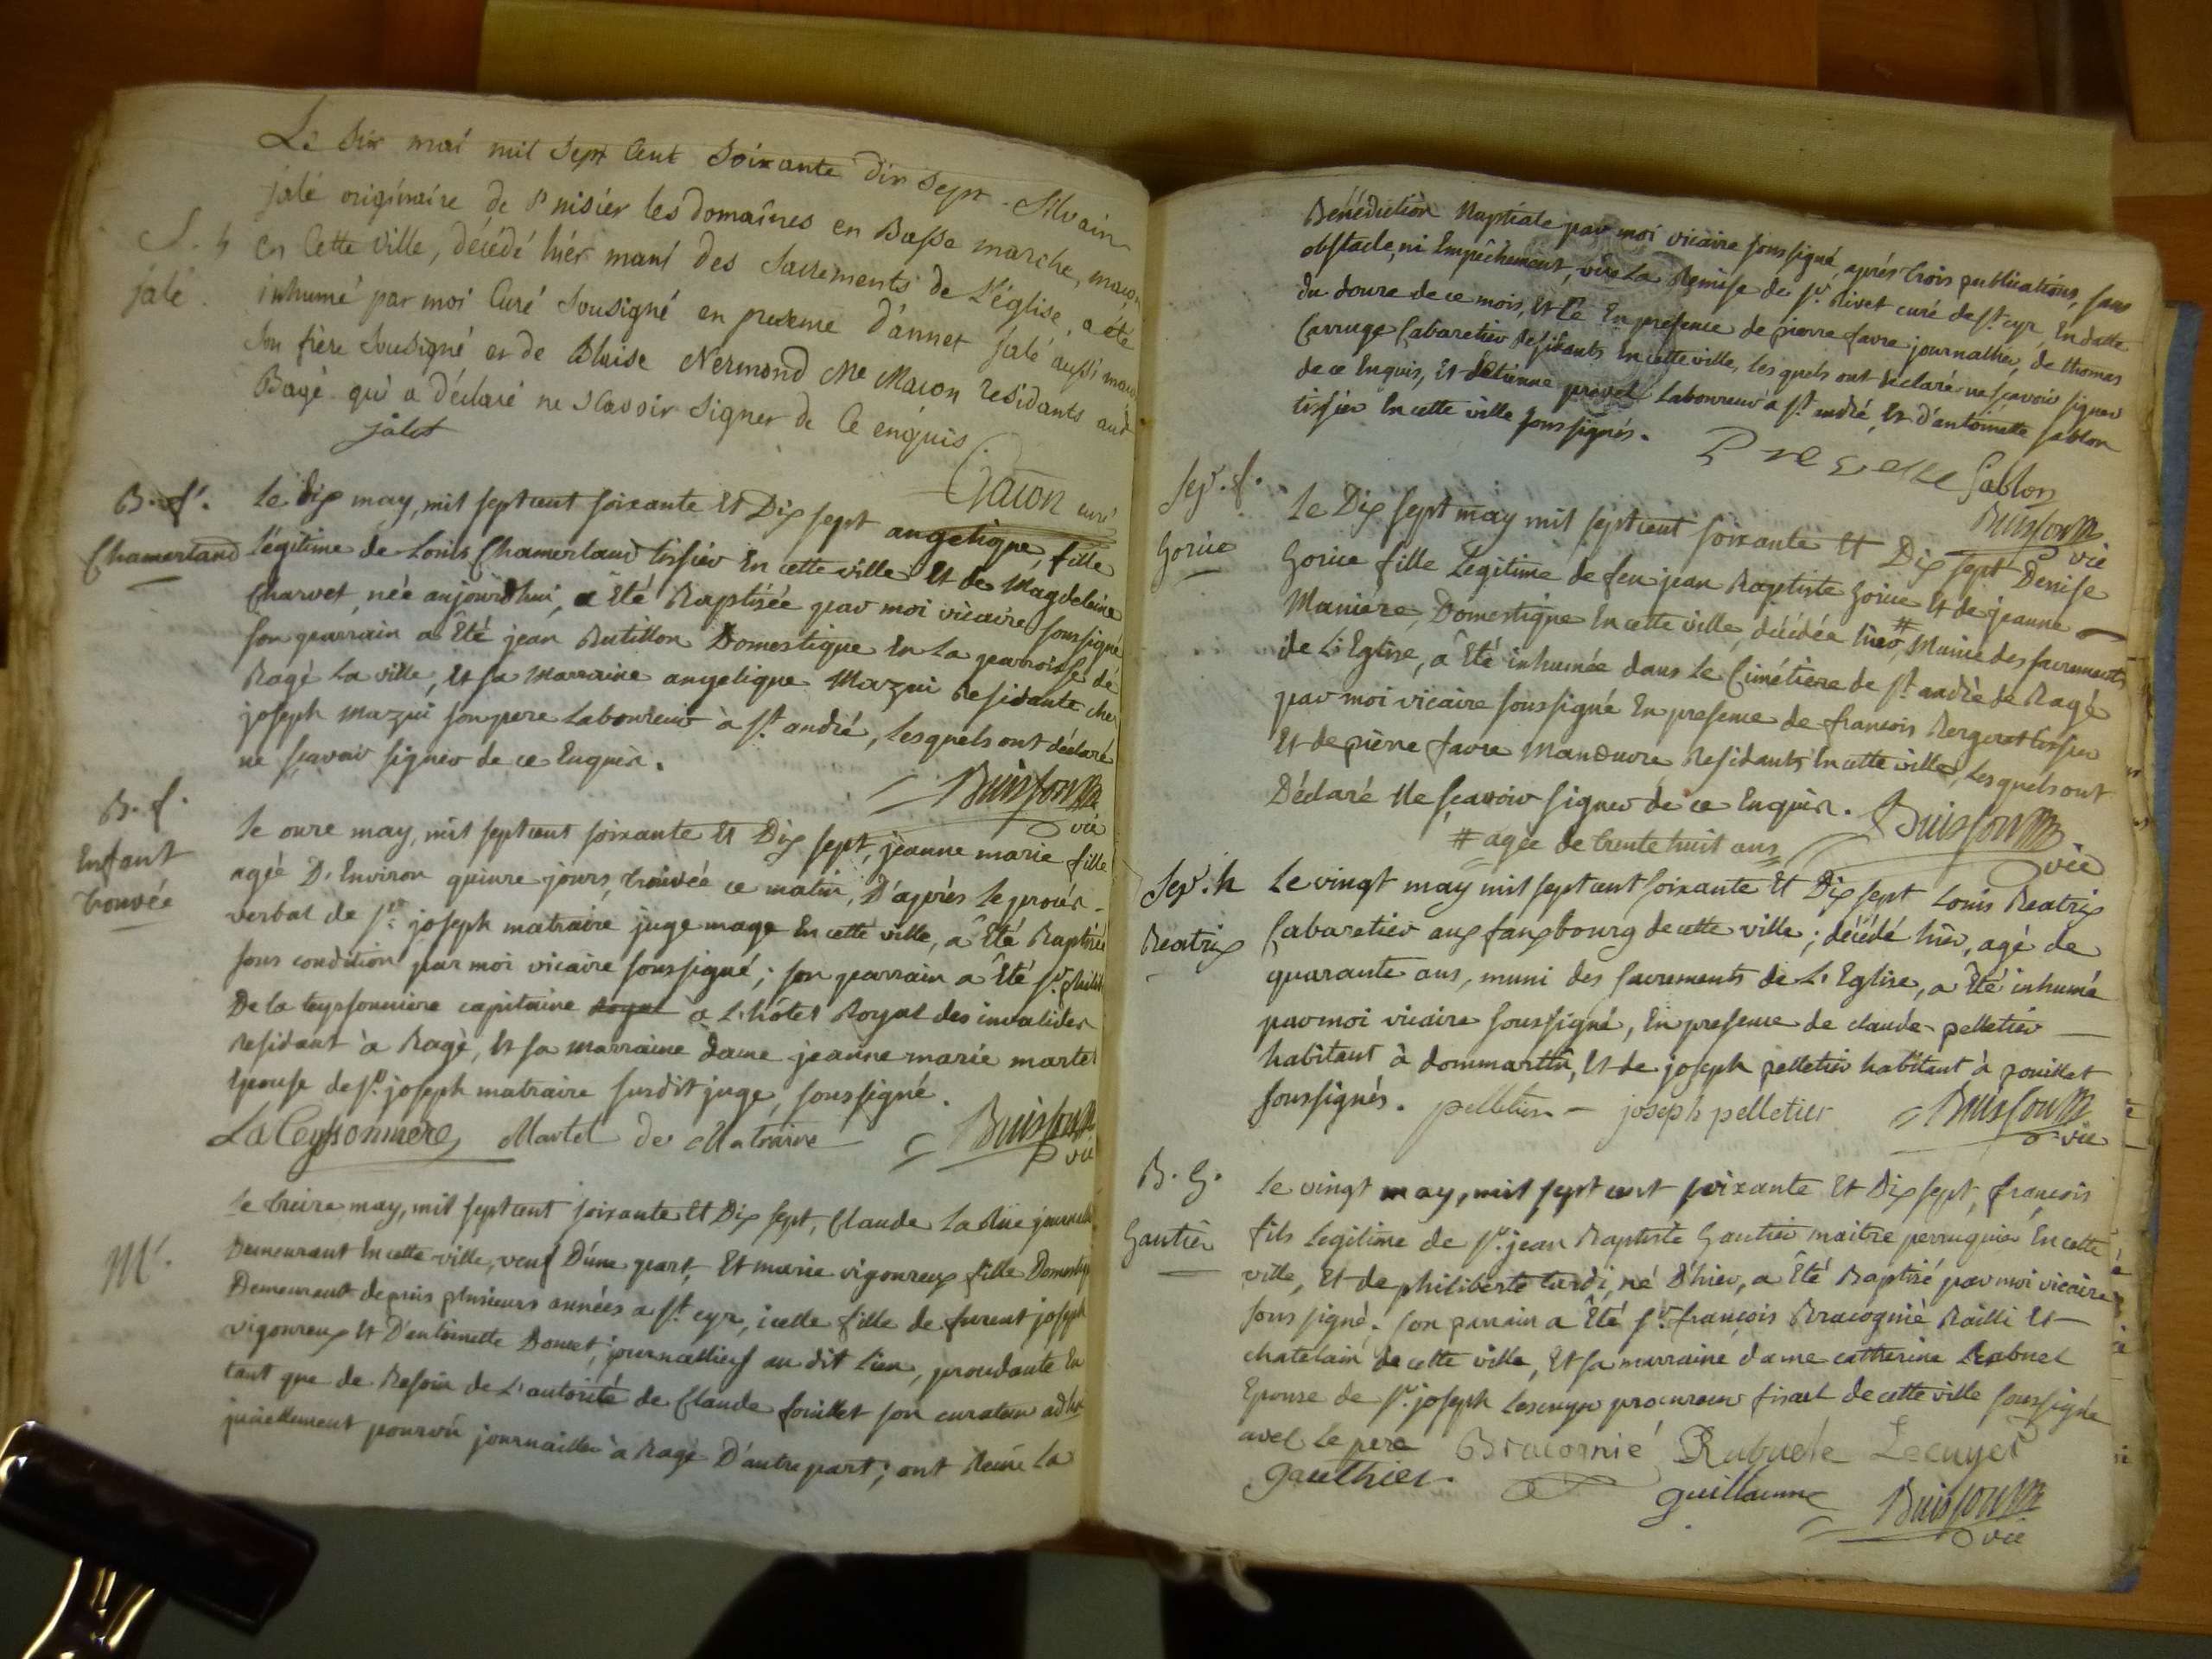 Le Six mai mil Sept Cent Soixante dix Sept. Silvain
jalé originaire de Pnisiér les domaînes en Basse marche, maçon
S. h en Cette Ville, décédé hiér muni des Sacrements de L'église, a été
jalé. inhumé par moi Curé Sousigné en presence d'annet jalé aussi maçon
Son frère Sousigné et de Blaise Nermond Me Macon residants aud
Bagé qui a déclaré ne Scavoir Signer de Ce enquis
jalet
Gacon curé
B. f. Le dix may, mil sept cent soixante Et Dix sept angelique, fille
Chamerland Légitime de Louis Chamerland tissier En cette ville Et de Magdeleine
Charvet, née aujourd'hui, a Eté Baptisée par moi vicaire soussigné
son parrain a Êté jean Butillon Domestique En La paroisse de
Bagé La ville, Et sa Marraine angelique Mazui Residante chez
joseph Mazui son pere Laboureur à st. andré, Lesquels ont déclaré
ne sçavoir signer de ce Enquis.
Buisson vic
B. f. Le onze may, mil sept cent soixante Et Dix sept, jeanne marie fille
Enfant agée D'Environ quinze jours, trouvée ce matin, D'aprés Le procés-
trouvée verbal de sr. joseph matraire juge mage En cette ville, a Êté Baptisée
sous condition par moi vicaire soussigné; son parrain a Êté sr. philib
De la teyssonniere capitaine royal à L'hôtel Royal des invalides
Residant à Bagé, Et sa marraine dame jeanne marie martel
Epouse de sr. joseph matraire susdit juge, soussigné.
La Teyssonniere Martel de Matraire Buisson vic
Le treize may, mil sept cent soixante Et Dix sept, Claude La Rue journalier
Mr. Demeurant En cette ville, veuf D'une part, Et marie vigoureux fille Domestiq
Demeurant depuis plusieurs années a st. cyr, icelle fille de furent joseph
vigoureux Et D'antoinette Doucet, journalliers au dit Lieu, procedante En
tant que de Besoin de L'autorité de Claude fouillet son curateur adhoc
juriellement pourvû journaillier à Bagé D'autre part; ont Reçu La
Benédiction Nuptiale par moi vicaire soussigné, aprés trois publications, sans
obstacle, ni Empêchement, vûe La Remise de sr. Rivet curé de st. cyr, En datte
du douze de ce mois, Et Ce En presence de pierre favre journallier, de thomas
Carruge Cabaretier Residants En cette ville, les quels ont declaré ne sçavoir signer
de ce Enquis, Et détienne prevel Laboureur à st. andré, Et d'antoinette sablon
tissier En cette ville soussignés.
Prevelle Sablon
Buisson vic
Sep. f. Le Dix sept may mil sept cent soixante Et Dix sept Denise
Gorice Gorice fille Legitime de feu jean Baptiste Gorice Et de jeanne
Maniére, Domestique En cette ville, décédée hier, # Munie des sacrements
de L'Eglise, a Êté inhumée dans Le Cimétiére de st. andré de Bagé
par moi vicaire soussigné En presence de francois Bergerot tissier
Et de piérre favre Manœuvre Residants En cette ville, Lesquels ont
Déclaré Ne sçavoir signer de ce Enquis. Buisson vic
# agée de trente huit ans
Sep. h Le vingt may mil sept cent soixante Et Dix sept Louis Beatrix
Beatrix Cabaretier aux fauxbourg de cette ville; décédé hier, agé de
quarante ans, muni des sacrements de L'Eglise, a Êté inhumé
par moi vicaire soussigné, En presence de claude pelletier
habitant à dommartin, Et de joseph pelletier habitant à pouillet
soussignés. pelletier joseph pelletier Buisson vic
B. G. Le vingt may, mil sept cent soixante Et Dix sept, françois
Gautier fils Legitime de sr. jean Baptiste Gautier maitre perruquier En cette
ville, Et de philiberte tardi, né D'hier, a Êté Baptisé par moi vicaire
soussigné. son parrain a Êté sr. françois Bracognié Bailli Et
chatelain de cette ville, Et sa marraine dame catherine Rabuel
Epouse de sr. joseph Lescuyer procureur fiscal de cette ville soussigné
avec le pere Bracornié Rabuele Lecuyer
gauthier guillaume Buisson vic